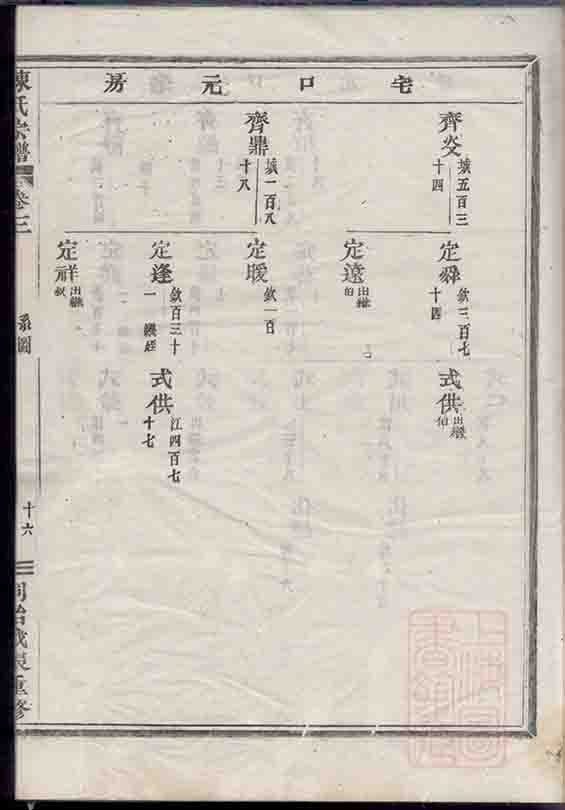 宅口元房
齊炎
城五百三
十四
齊鼎
城一百八
十八
定舜
欽三百七
十四
定遠
出繼
伯
定暖
欽一百
定逢
欽百三十
一 繼姪
定祥
出繼
叔
式供
出繼
伯
式供
江四百七
十七
陳氏宗譜
卷三
系圖
十六
同治戊辰重修